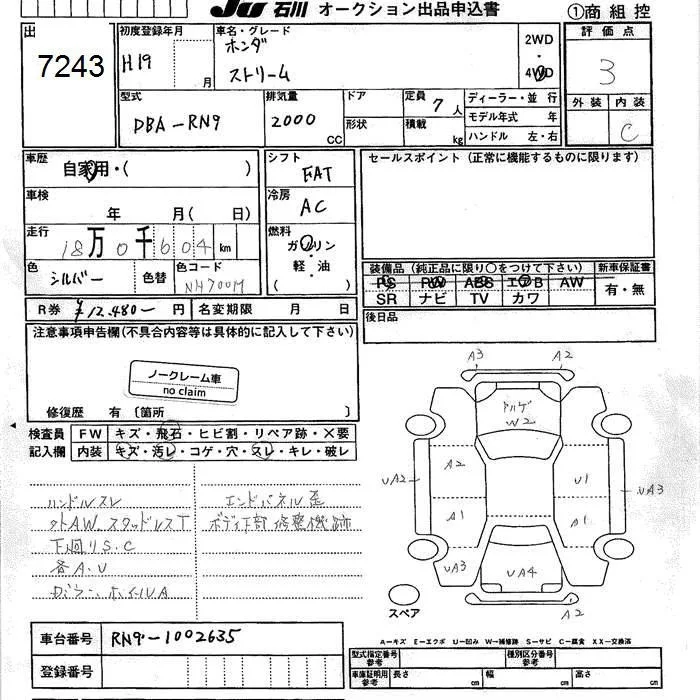 JU 石川 オークション出品申込書 ①商 組 控
出 7243
初度登録年月 H19 月
車名・グレード ホンダ ストリーム
2WD・4WD
評価点 3
型式 DBA-RN9
排気量 2000 CC
ドア 形状
定員 7人 積載 kg
ディーラー・並行
モデル年式 年
ハンドル 左・右
外装 内装 C
車歴 自家用・( )
シフト FAT
セールスポイント(正常に機能するものに限ります)
車検 年 月( 日)
冷房 AC
走行 18万0千604km
燃料 ガソリン・軽・油
色 シルバー 色替 色コード NH700M
装備品(純正品に限り○をつけて下さい) 新車保証書
PS PW ABS エアB AW 有・無
SR ナビ TV カワ
R券 ¥12,480- 円 名変期限 月 日
後日品
注意事項申告欄(不具合内容等は具体的に記入して下さい)
ノークレーム車
no claim
修復歴 有〔箇所 〕
検査員 FW キズ・飛石・ヒビ割・リペア跡・×要
記入欄 内装 キズ・汚レ・コゲ・穴・スレ・キレ・破レ
ハンドルスレ エンドパネル歪
タトAW スタッドレスT ボディ下部修整機跡
下廻りS.C
各A.U
ホイルA
A3 A2
W2
A2 U1
UA2 UA3
A1 A1
UA3 UA4
A2
スペア
A−キズ E−エクボ U−凹み W−補修跡 S−サビ C−腐食 XX−交換済
車台番号 RN9-1002635
型式指定番号 参考 種別区分番号 参考
登録番号
車庫証明用 参考 長さ cm 幅 cm 高さ cm